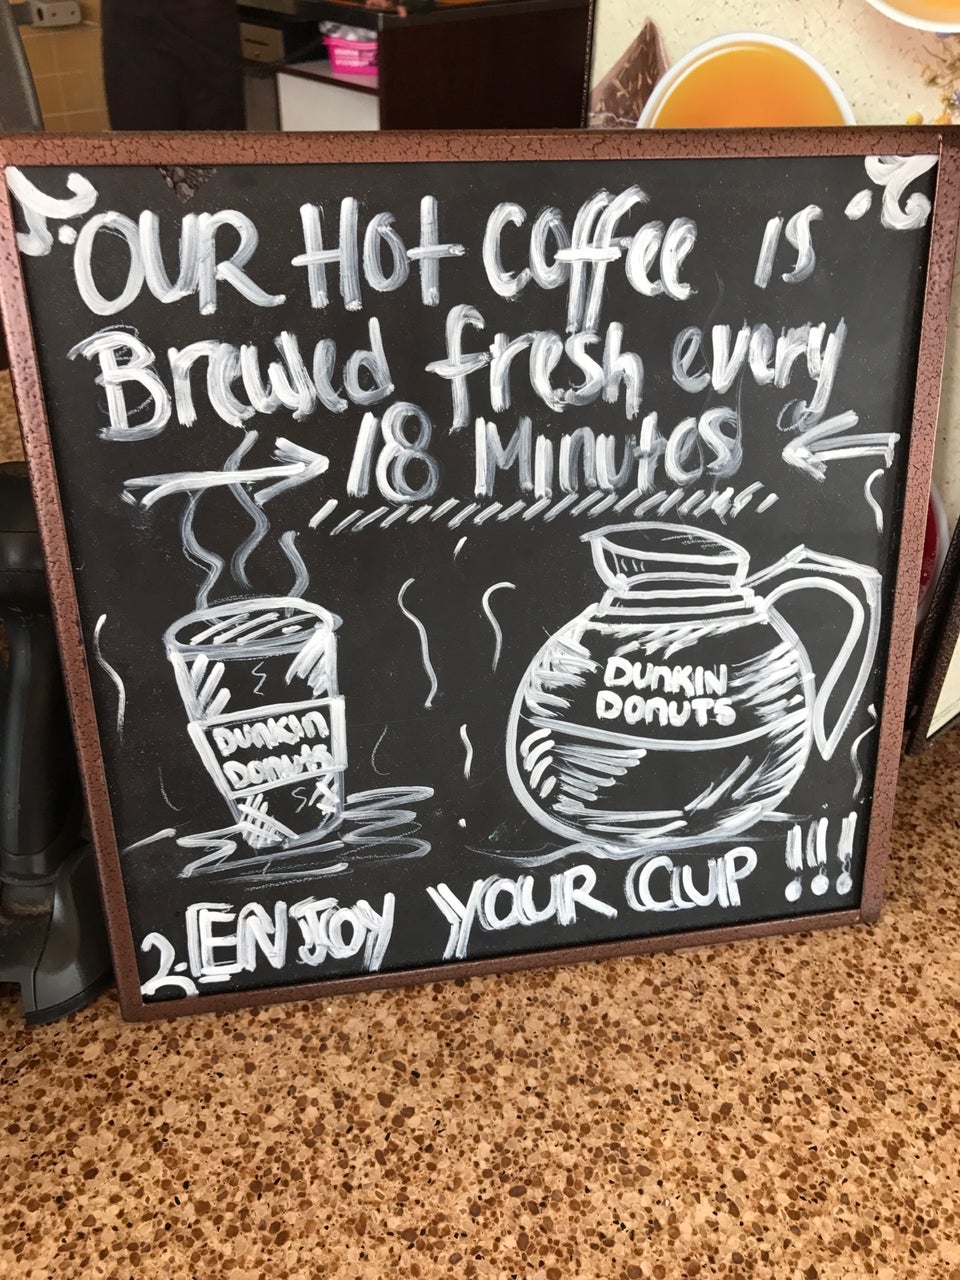 OUR HOt Coffee is
Brewed fresh every
18 Minutes
DUNKIN
DONUTS
DUNKIN
DONUTS
ENJOY YOUR CUP !!!